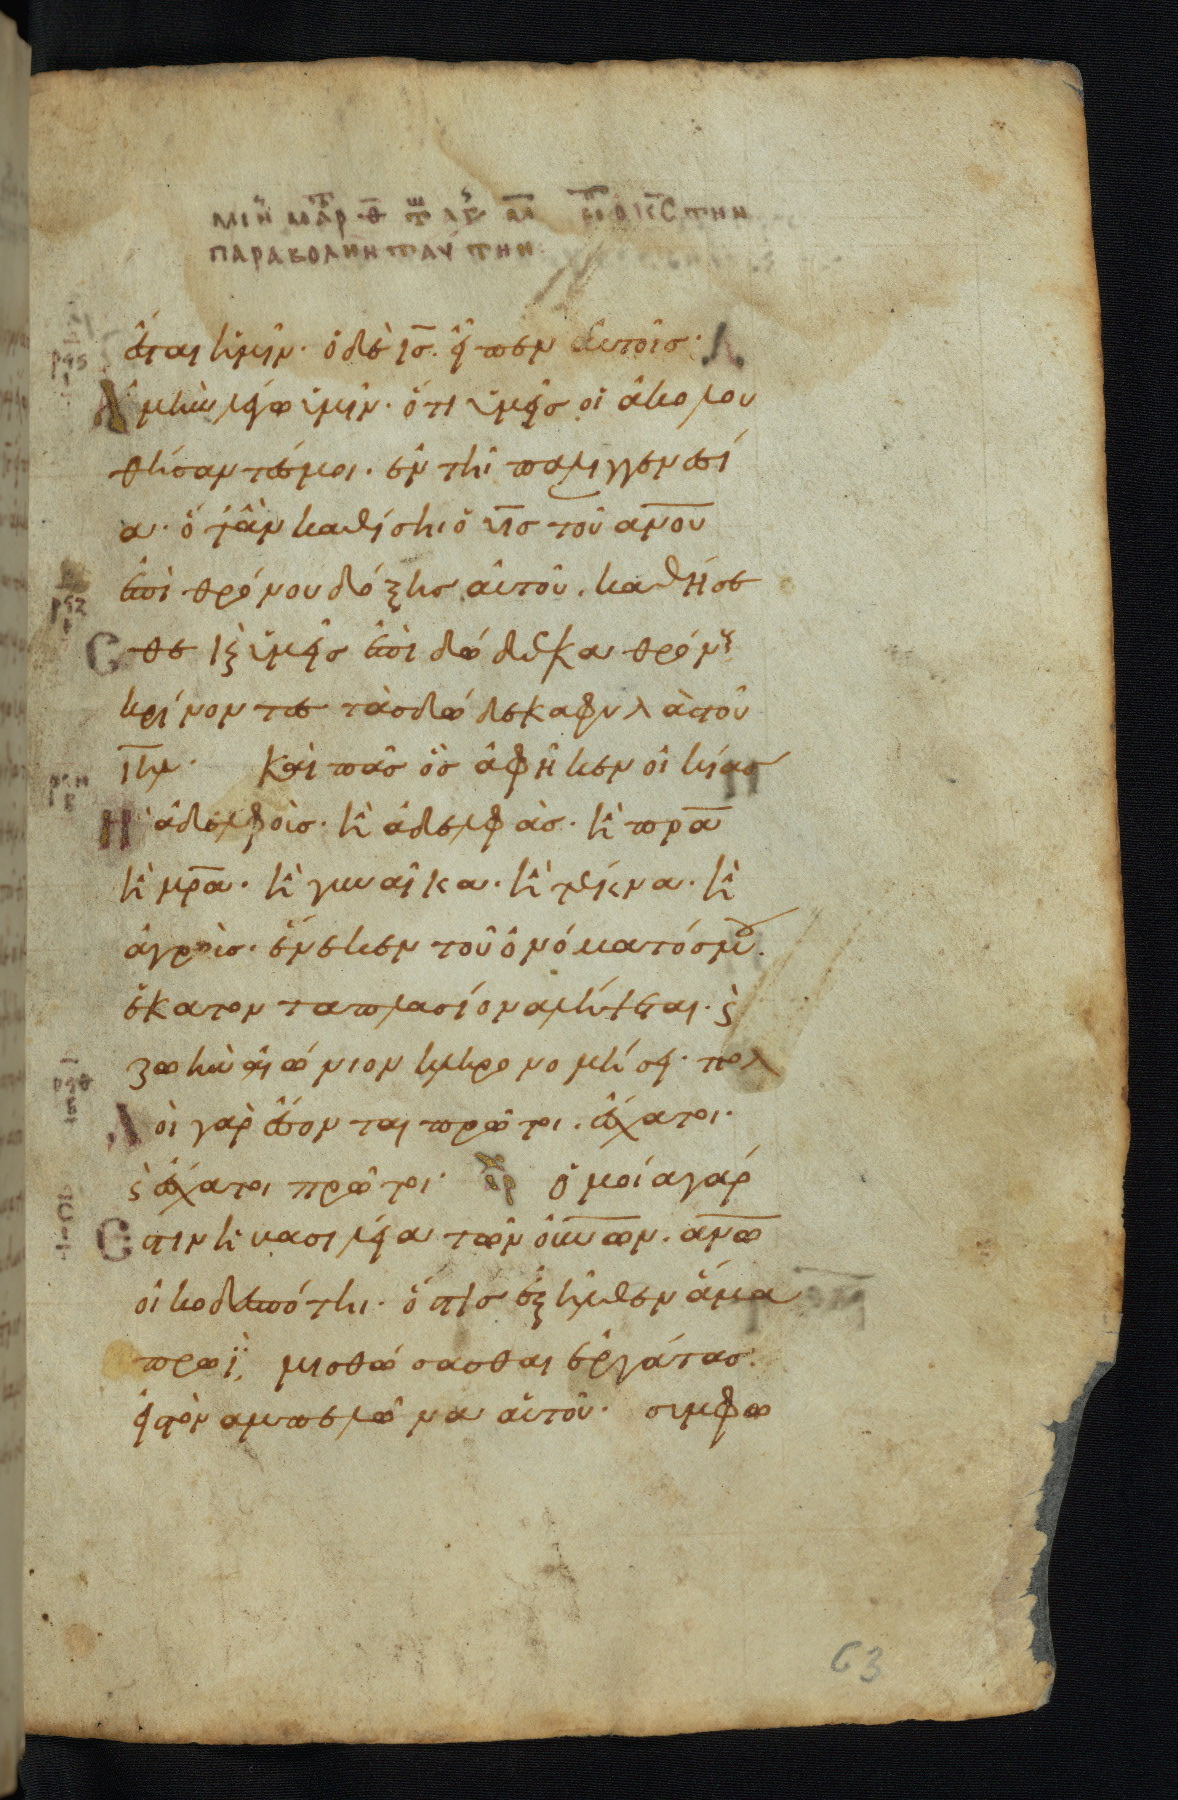 ἔσται ἡμῖν· ὁ δὲ ις· εἶπεν αὐτοῖς·
Ἀμὴν λέγω ὑμῖν· ὅτι ὑμεῖς οἱ ἀκολου
θήσαντές μοι· ἐν τῆ παλιγγενεσί
α· ὅταν καθίση ὁ υς τοῦ ανου
ἐπὶ θρόνου δόξης αὐτοῦ· καθήσε
σθε κ ὑμεῖς ἐπὶ δώδεκα θρόν
κρίνοντες τὰς δώδεκα φυλὰς τοῦ
ιηλ· Καὶ πᾶς ὃς ἀφῆκεν οἰκίας
Ἢ ἀδελφοὺς· ἢ ἀδελφὰς· ἢ πρα
ἢ μρα· ἢ γυναῖκα· ἢ τέκνα· ἢ
ἀγροὺς· ἕνεκεν τοῦ ὀνόματός μου·
ἑκατονταπλασίονα λήψεται· κ
ζωὴν αἰώνιον κληρονομήσει· πολ
Λοὶ γὰρ ἔσονται πρῶτοι· ἔσχατοι·
κ ἔσχατοι πρῶτοι· ὁμοία γάρ
Ἐστιν ἡ βασιλεία τῶν οὐνων· ανω
οἰκοδεσπότη· ὅστις ἐξῆλθεν ἅμα
πρωῒ· μισθώσασθαι ἐργάτας·
εἰς τὸν ἀμπελῶνα αὐτοῦ· συμφω
ὁ κς την
παραβολην ταύτην
63